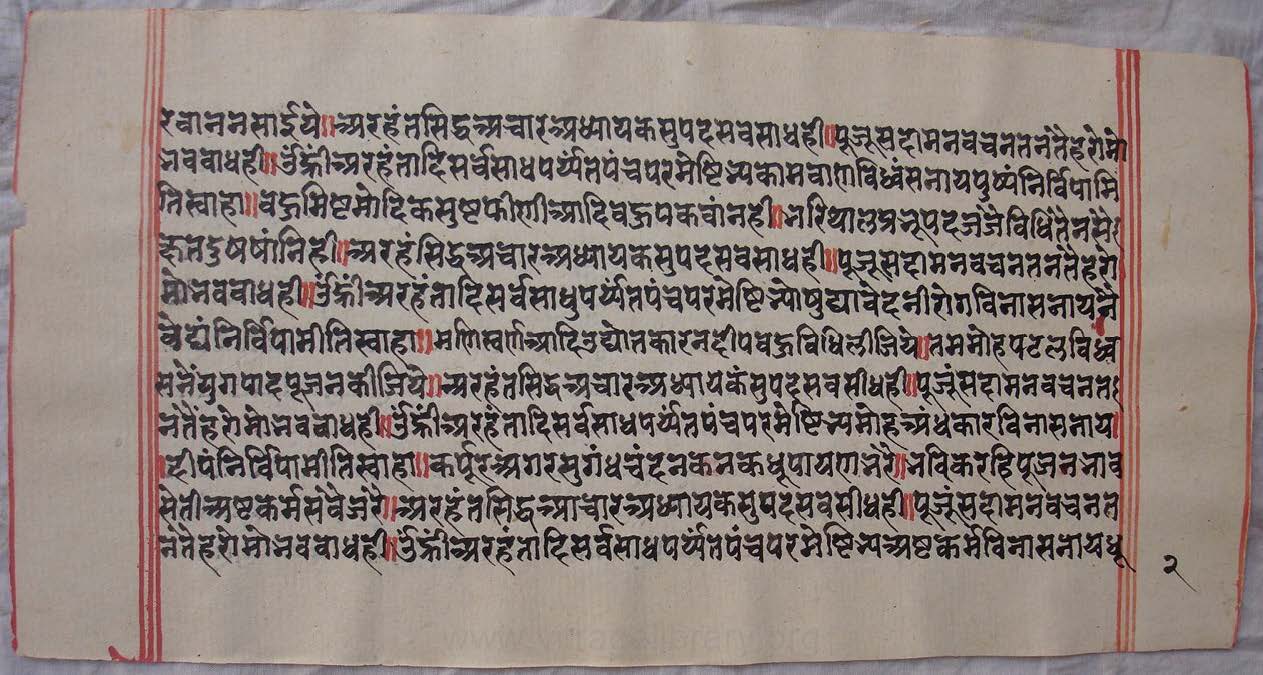 रेवाननसाईये॥अरहंतसिद्धअचारअध्यायकसुपदसवसाधही॥पूजूसदामनवचनतनतैहरोमो
भवबाधही॥ॐह्रींअरहंतादिसर्वसाधपर्य्यतपंचपरमेष्टिभ्यकामवाणविध्वंसनायपुष्पंनिर्विपामि
तिस्वाहा॥बहुमिष्टमोदिकसुष्टफीणीआदिबहुपकवांनही॥भरिथाल
अरहंसिद्धअचारअध्यायकसुपदसवसाधही॥पूजूसदामनवचनतनतैहरो
मोभवबाधही॥ॐह्रींअरहंतादिसर्वसाधुपर्य्यतपंचपरमेष्टिभ्योषुद्यावेदनीरोगविनासनायनै
वेद्यंनिर्विपामीतिस्वाहा॥मणिस्वर्णआदिउद्योतकारनदीपबहुविधिलीजिये॥तममोहपटलविध्व
सतैंयुगपादपूजनकीजिये॥अरहंतसिद्धअचारअध्यायकंसुपदसवसीधही॥पूजूंसदामनवचनत
नतैंहरोमोभवबाधही॥ॐह्रींअरहंतादिसर्वसाधपर्य्यतपंचपरमेष्टिभ्यमोहअंधकारविनासनाय
दीपंनिर्विपामीतिस्वाहा॥कर्पूरअगरसुगंधचंदनकनकधूपायणभरै॥भविकरहिपूजनभाव
सेतीअष्टकर्मसवैजरै॥अरहंतसिद्धआचारअध्यायकसुपदसवसीधही॥पूजूंसदामनवचनत
नतैहरोमोभवबाधही॥ॐह्रींअरहंतादिसर्वसाधपर्य्यतपंचपरमेष्टिभ्यअष्टकर्मविनासनायधू
२